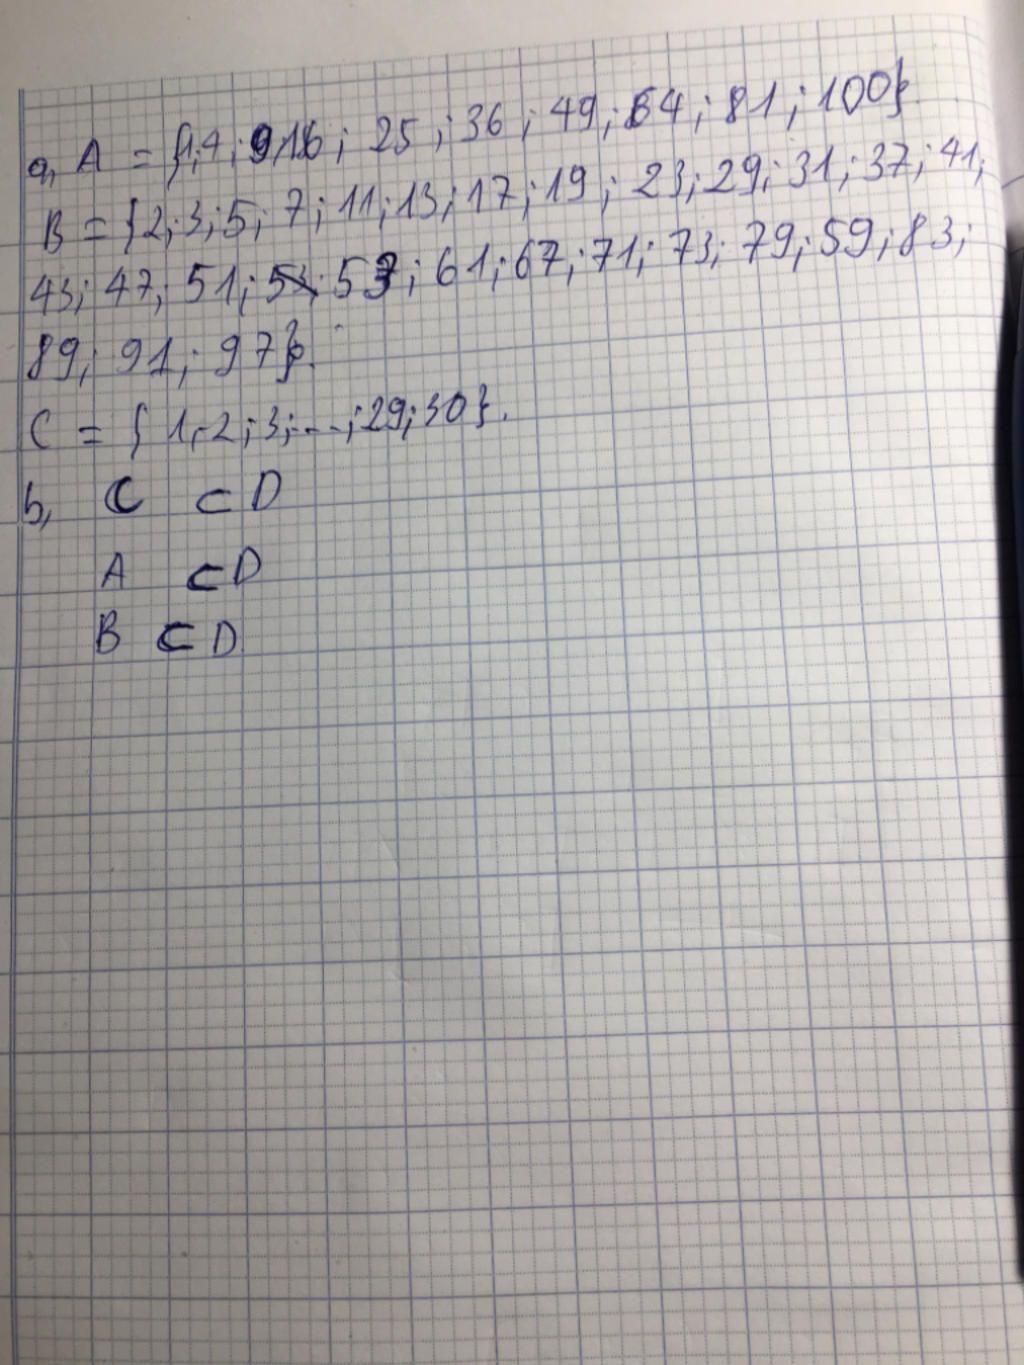 a, A = {1; 4; 9; 16; 25; 36; 49; 64; 81; 100}.
B = {2; 3; 5; 7; 11; 13; 17; 19; 23; 29; 31; 37; 41;
43; 47; 51; 53; 61; 67; 71; 73; 79; 59; 83;
89; 91; 97}.
C = { 1; 2; 3; ...; 29; 30}.
b, C ⊂ D
A ⊂ D
B ⊂ D